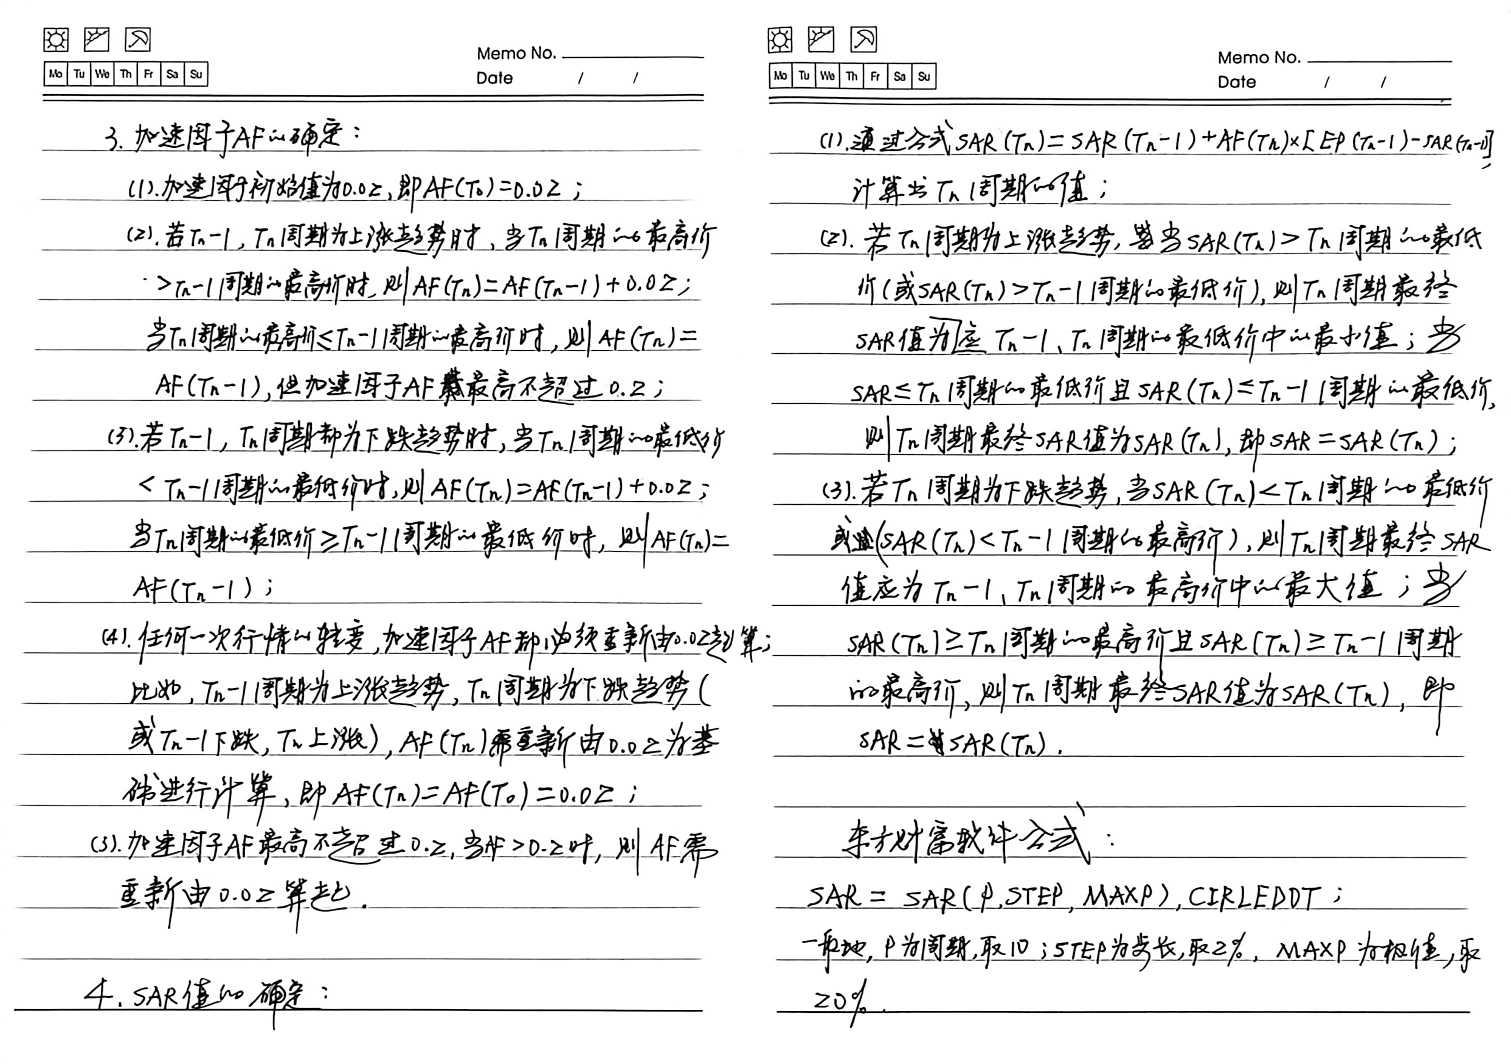 Memo No.
Mo Tu We Th Fr Sa Su
Date / /
3. 加速因子AF的确定：
(1).加速因子初始值为0.02,即AF(T₀)=0.02；
(2).若Tn-1，Tn周期为上涨趋势时，当Tn周期的最高价
>Tn-1周期的最高价时,则AF(Tn)=AF(Tn-1)+0.02；
当Tn周期的最高价≤Tn-1周期的最高价时，则AF(Tn)=
AF(Tn-1),但加速因子AF最高不超过0.2；
(3).若Tn-1，Tn周期都为下跌趋势时，当Tn周期的最低价
< Tn-1周期的最低价时,则AF(Tn)=AF(Tn-1)+0.02；
当Tn周期的最低价≥Tn-1周期的最低价时，则AF(Tn)=
AF(Tn-1)；
(4).任何一次行情的转变,加速因子AF都必须重新由0.02起算；
比如,Tn-1周期为上涨趋势,Tn周期为下跌趋势(
或Tn-1下跌,Tn上涨),AF(Tn)需重新由0.02为基
础进行计算,即AF(Tn)=AF(T₀)=0.02；
(5).加速因子AF最高不超过0.2,当AF>0.2时，则AF需
重新由0.02算起.
4. SAR值的确定：
Memo No.
Mo Tu We Th Fr Sa Su
Date / /
(1).通过公式SAR(Tn)=SAR(Tn-1)+AF(Tn)×[EP(Tn-1)-SAR(Tn-1)]
计算出Tn周期的值；
(2).若Tn周期为上涨趋势,当SAR(Tn)>Tn周期的最低
价(或SAR(Tn)>Tn-1周期的最低价),则Tn周期最终
SAR值为应Tn-1、Tn周期的最低价中的最小值；当
SAR≤Tn周期的最低价且SAR(Tn)≤Tn-1周期的最低价,
则Tn周期最终SAR值为SAR(Tn),即SAR=SAR(Tn)；
(3).若Tn周期为下跌趋势,当SAR(Tn)<Tn周期的最低价
或(SAR(Tn)<Tn-1周期的最高价),则Tn周期最终SAR
值应为Tn-1、Tn周期的最高价中的最大值；当
SAR(Tn)≥Tn周期的最高价且SAR(Tn)≥Tn-1周期
的最高价,则Tn周期最终SAR值为SAR(Tn),即
SAR=SAR(Tn).
东方财富软件公式：
SAR = SAR(P,STEP,MAXP),CIRLEDDT；
一般地,P为周期,取10；STEP为步长,取2%，MAXP为极值,取
20%.